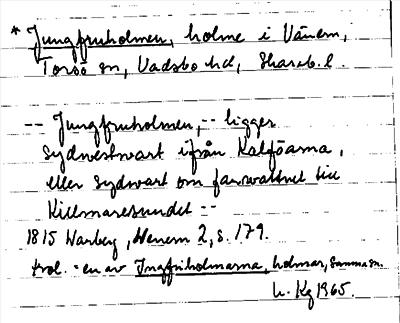 * Jungfruholmen, holme i Vänern,
Torsö sn, Vadsbo hd, Skarab. l.
-- Jungfruholmen, -- ligger
sydvestwart ifrån Kalföarna,
eller sydwart om farwattnet till
Killmaresundet --
1815 Warberg, Wenern 2, s. 179.
trol. = en av Jungfruholmarna, holmar, samma sn.
L. Kg 1965.